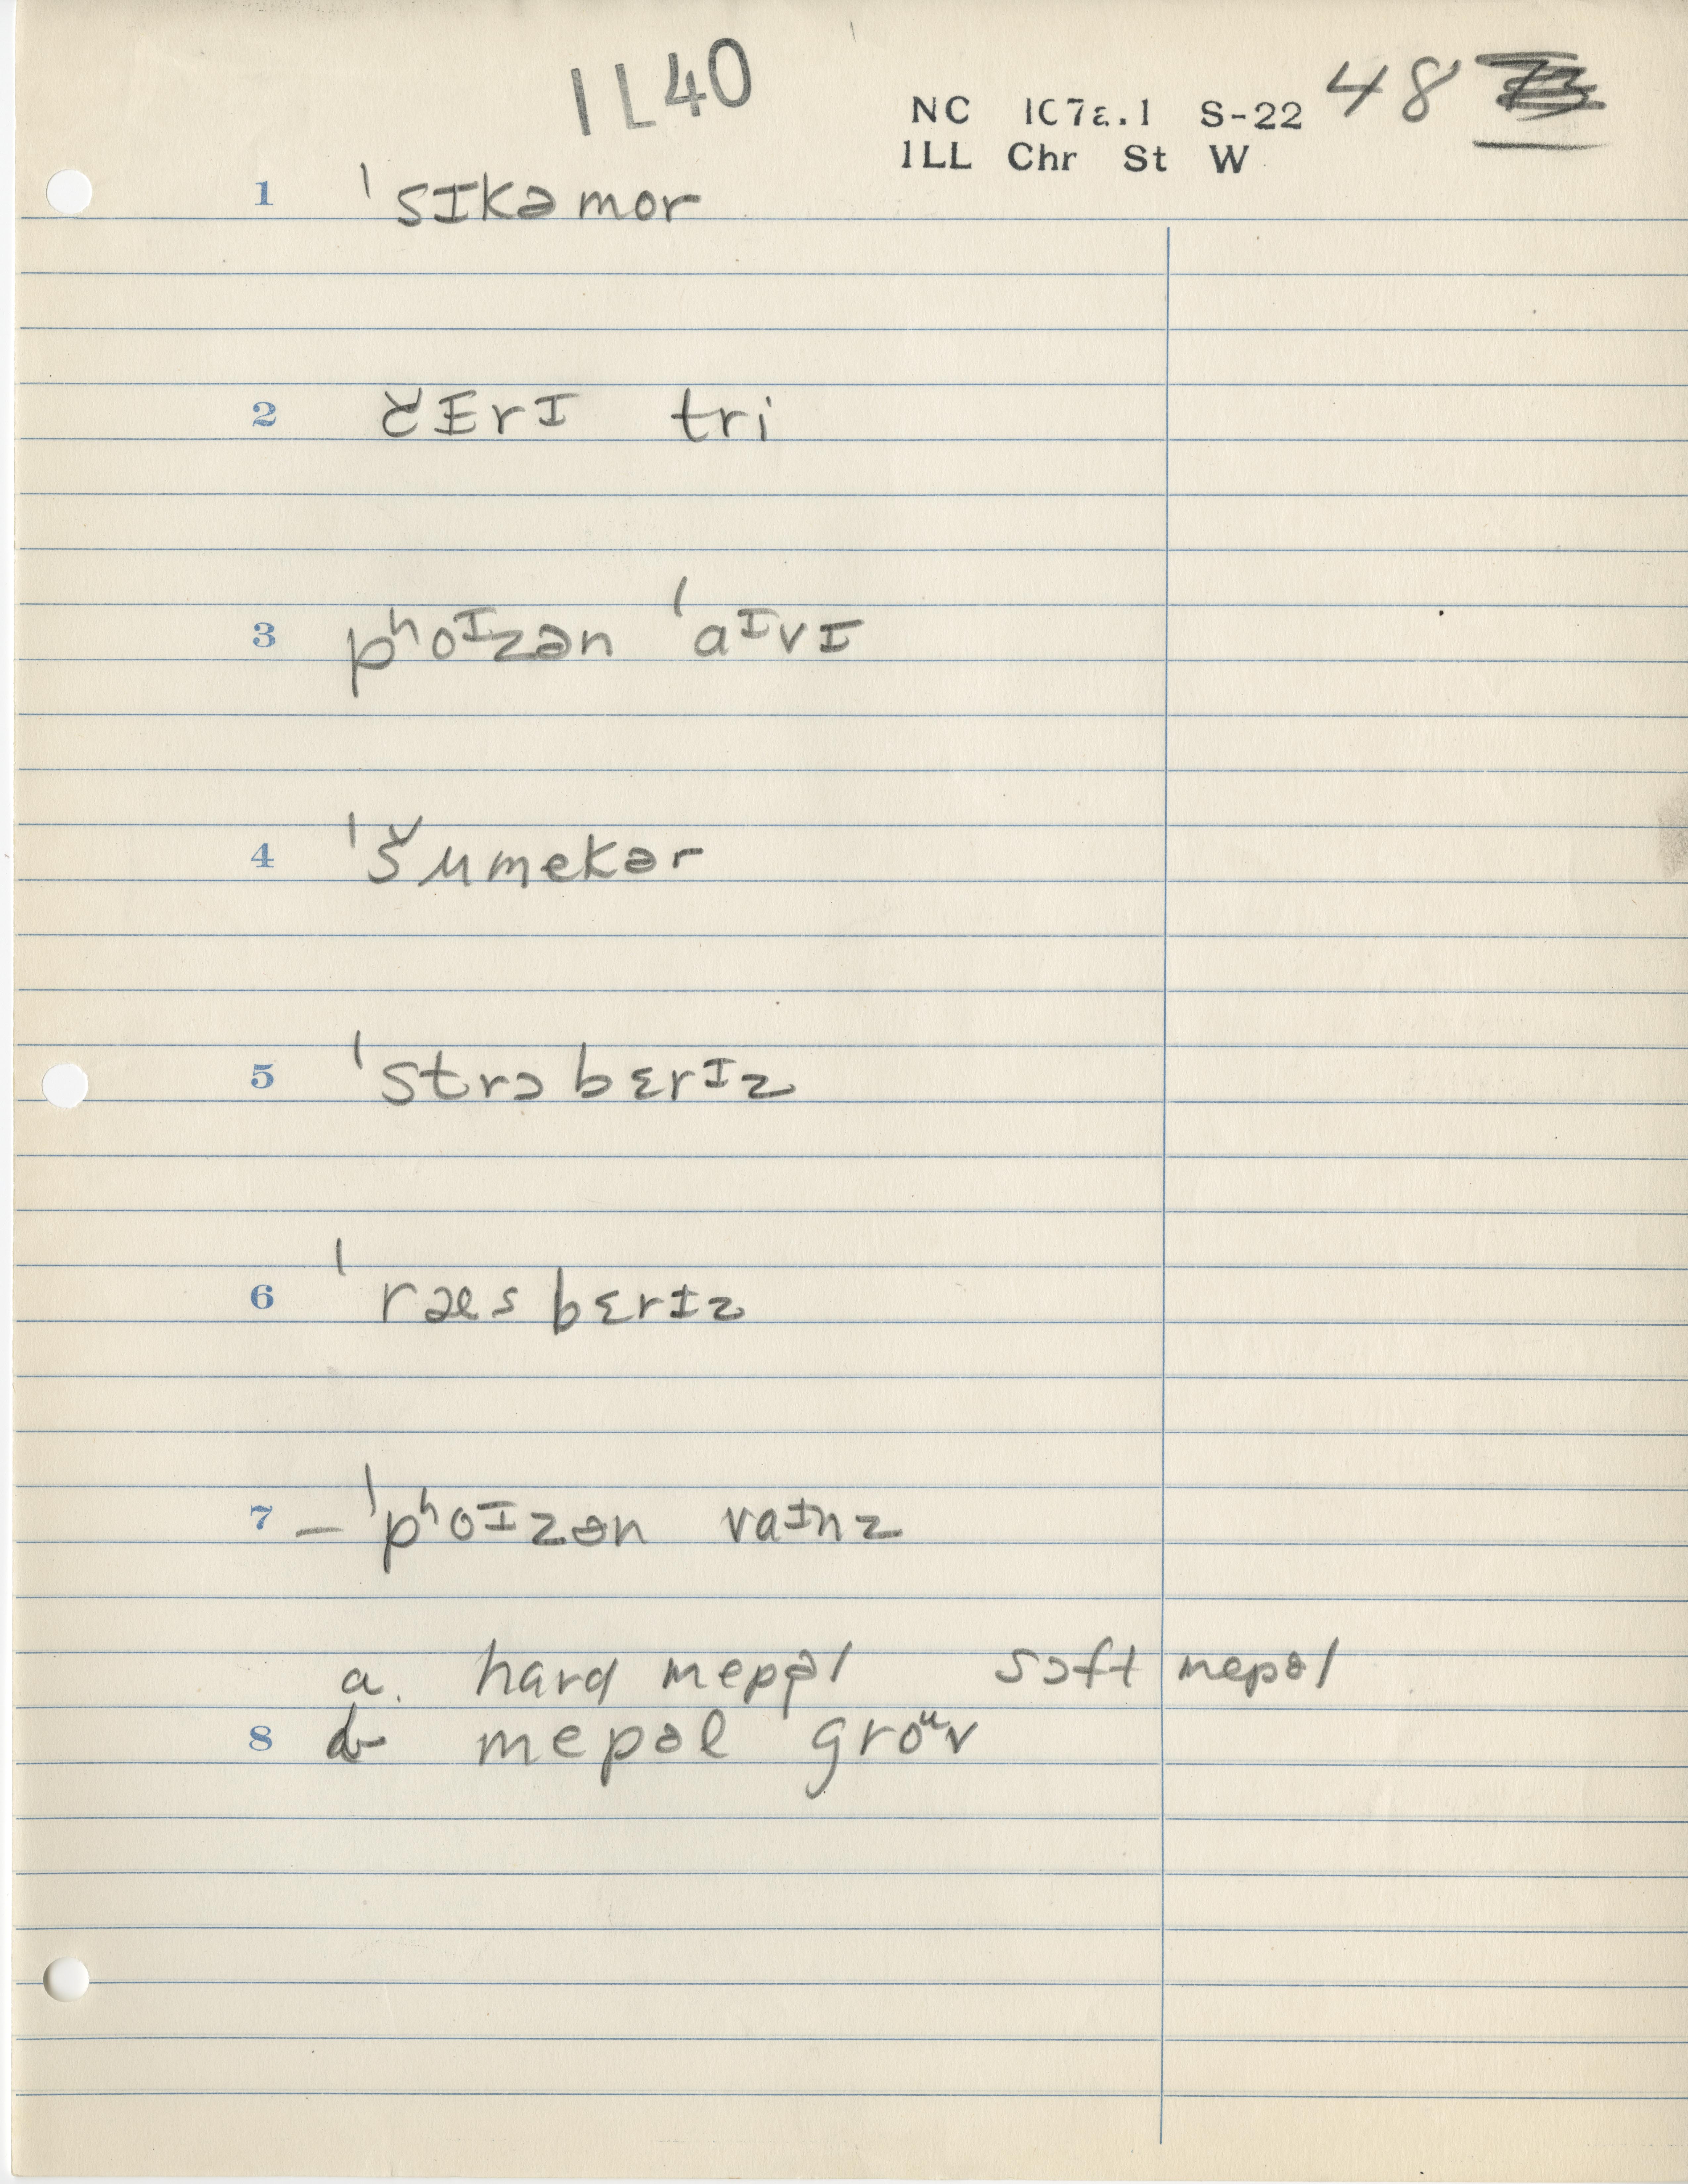 IL40
NC 107a.1 S-22 48
ILL Chr St W
1 ˈsɪkəmor
2 č̌ɛrɪ tri
3 pʰoɪzən ˈaɪvɪ
4 ˈšumekər
5 ˈstrɔbɛrɪz
6 ˈræsbɛrɪz
7 – ˈpʰoɪzən vaɪnz
a. hard mepəl sɔft mepəl
8 b mepəl groᵘv